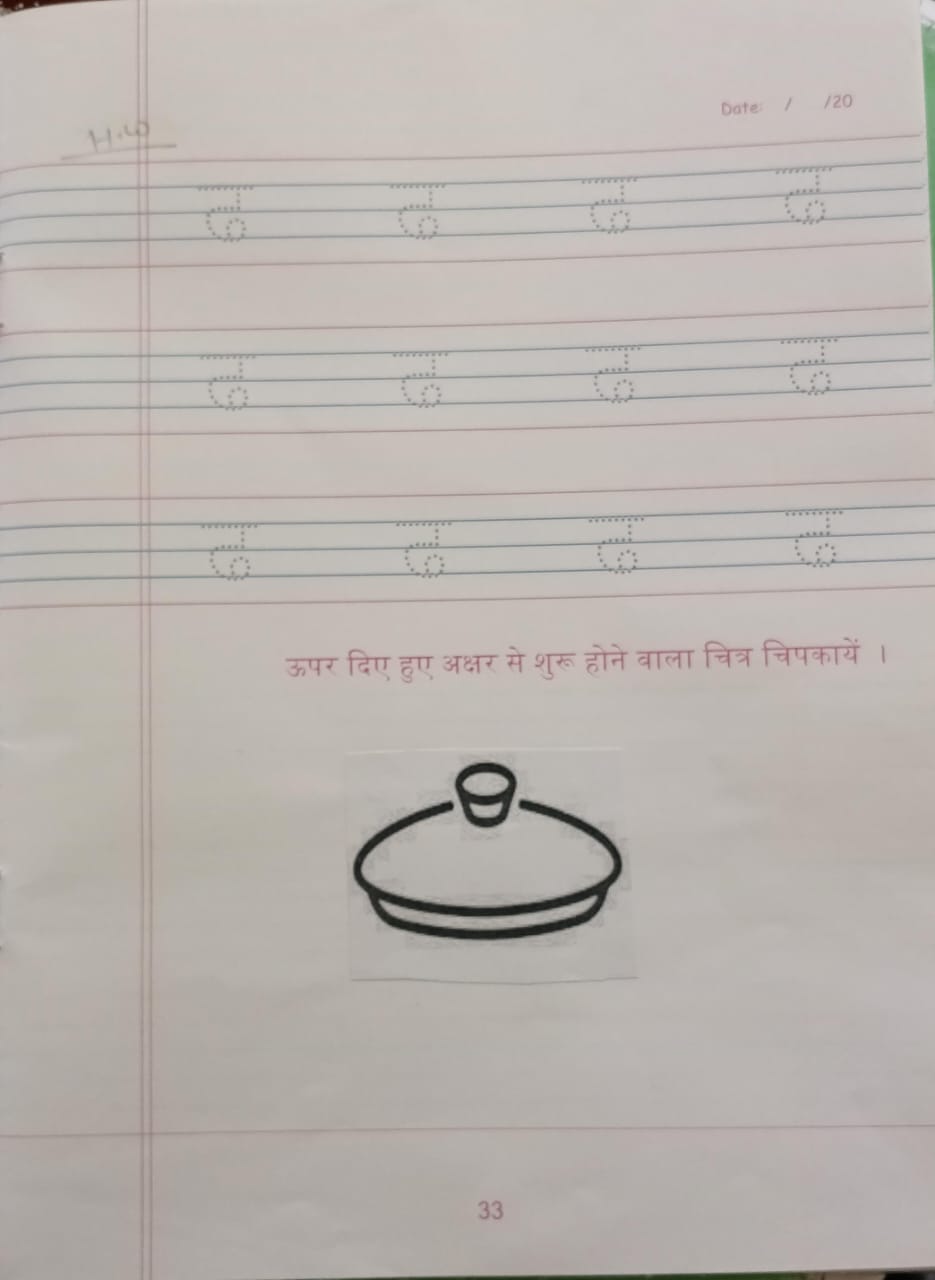 Date: / /20
H.W
ढ ढ ढ ढ
ढ ढ ढ ढ
ढ ढ ढ ढ
ऊपर दिए हुए अक्षर से शुरू होने वाला चित्र चिपकायें ।
33